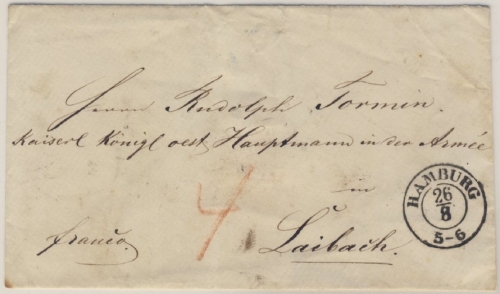 Herrn Rudolph Tormin.
Kaiserl Königl oest Hauptmann in der Armée
in
Laibach.
franco.
4
HAMBURG
26
8
5-6